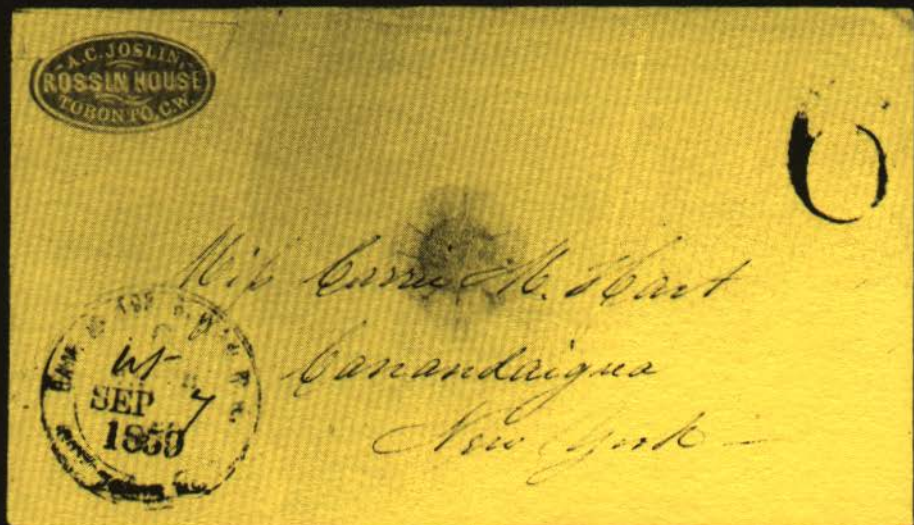 A.C. JOSLIN,
ROSSIN HOUSE
TORONTO, C.W.
6
Miss Carrie M. Hart
Canandaigua
New York
HAM. & TOR. G.W.R.
SEP 7
1859